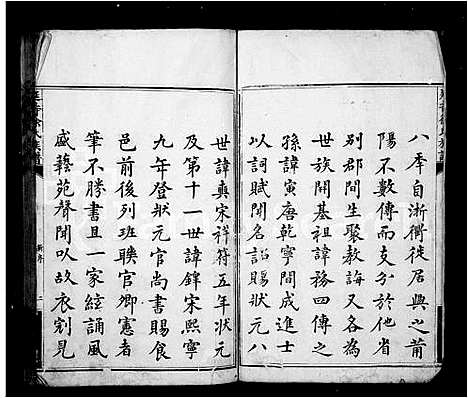 八年自浙衢徙居興之莆
陽不數傳而支分於他省
别郡間生聚教誨又各為
世族開基祖諱務四傳之
孫諱寅唐乾寧間成進士
以詞賦聞名詔賜狀元八
世諱奭宋祥符五年狀元
及第十一世諱鐸宋熙寧
九年登狀元官尚書賜食
邑前後列班聯官卿憲者
筆不勝書且一家絃誦風
盛藝苑聲聞以故衣冠見
新序
二